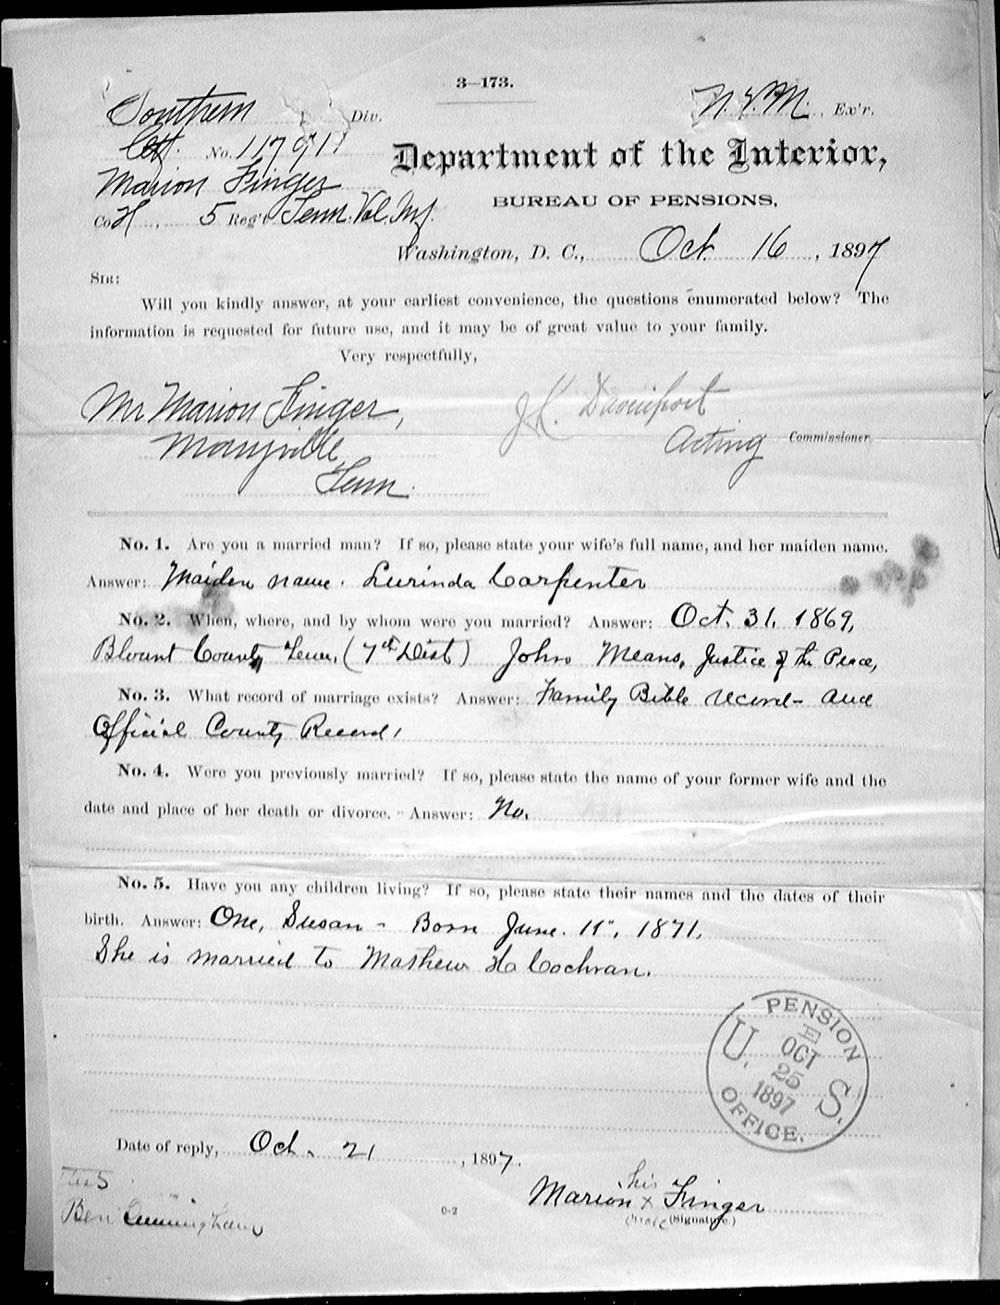 3—173.
Southern Div.
N. E. M. Ex'r.
Ctf. No. 117911
Department of the Interior,
Marion Finger
BUREAU OF PENSIONS,
Co. H, 5 Reg't Tenn. Vol. Inf.
Washington, D. C., Oct. 16, 1897
SIR:
Will you kindly answer, at your earliest convenience, the questions enumerated below? The
information is requested for future use, and it may be of great value to your family.
Very respectfully,
Mr Marion Finger,
Maryville,
Tenn.
Davenport
Acting Commissioner.
No. 1. Are you a married man? If so, please state your wife's full name, and her maiden name.
Answer: Maiden name. Lurinda Carpenter
No. 2. When, where, and by whom were you married? Answer: Oct. 31, 1869,
Blount County Tenn, (7th Dist) John Means, Justice of the Peace,
No. 3. What record of marriage exists? Answer: Family Bible record - and
Official County Record,
No. 4. Were you previously married? If so, please state the name of your former wife and the
date and place of her death or divorce. Answer: No.
No. 5. Have you any children living? If so, please state their names and the dates of their
birth. Answer: One, Susan - Born June. 11", 1871,
She is married to Mathew H Cochran.
U. S. PENSION OFFICE.
OCT
25
1897
Date of reply, Oct. 21, 1897.
his
Marion x Finger
mark (Signature.)
Ben Cunningham
0-2